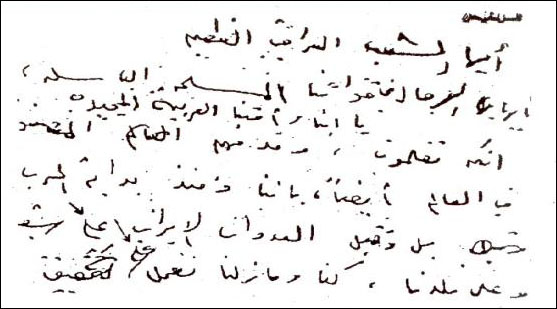 أيها الشعب العراقي العظيم
أيها الرجال في قواتنا المسلحة الباسلة،
يا أبناء أمتنا العربية المجيدة
انكم تعلمون، و معهم العالم
في العالم أيضاً، بأننا ومنذ بداية الحرب
بل وقبل العدوان الإيراني على
وعلى بلدنا، كنا وما زلنا نعمل على تحقيق